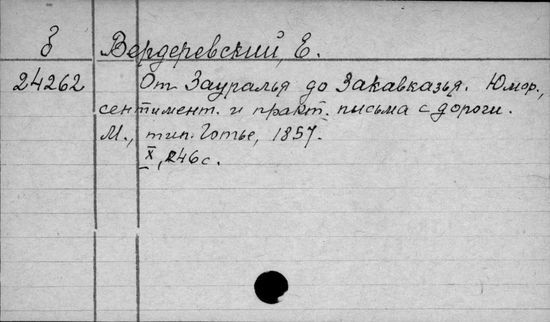 З Вердеревский, Е.
24262 От Зауралья до Закавказья. Юмор.,
сентимент. и практ. письма с дороги.
М., тип. Готье, 1857.
X, 246 с.